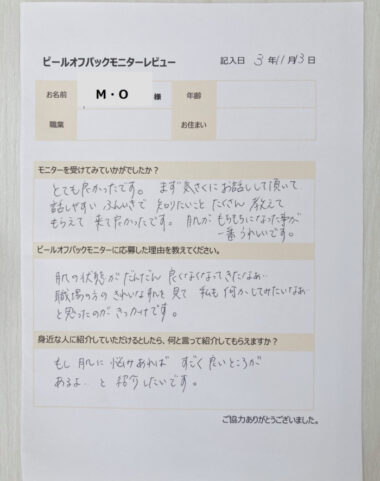 ピールオフパックモニターレビュー
記入日 3年11月13日
お名前 M・O 様 年齢
職業 お住まい
モニターを受けてみていかがでしたか?
とても良かったです。まず気さくにお話しして頂いて
話しやすいふんいきで知りたいことたくさん教えて
もらえて来て良かったです。肌がもちもちになった事が
一番うれしいです。
ピールオフパックモニターに応募した理由を教えてください。
肌の状態がだんだん良くなくなってきたなぁ…
職場の方のきれいな肌を見て私も何かしてみたいなぁ…
と思ったのがきっかけです。
身近な人に紹介していただけるとしたら、何と言って紹介してもらえますか?
もし肌に悩みあれば すごく良いところが
あるよ…と紹介したいです。
ご協力ありがとうございました。